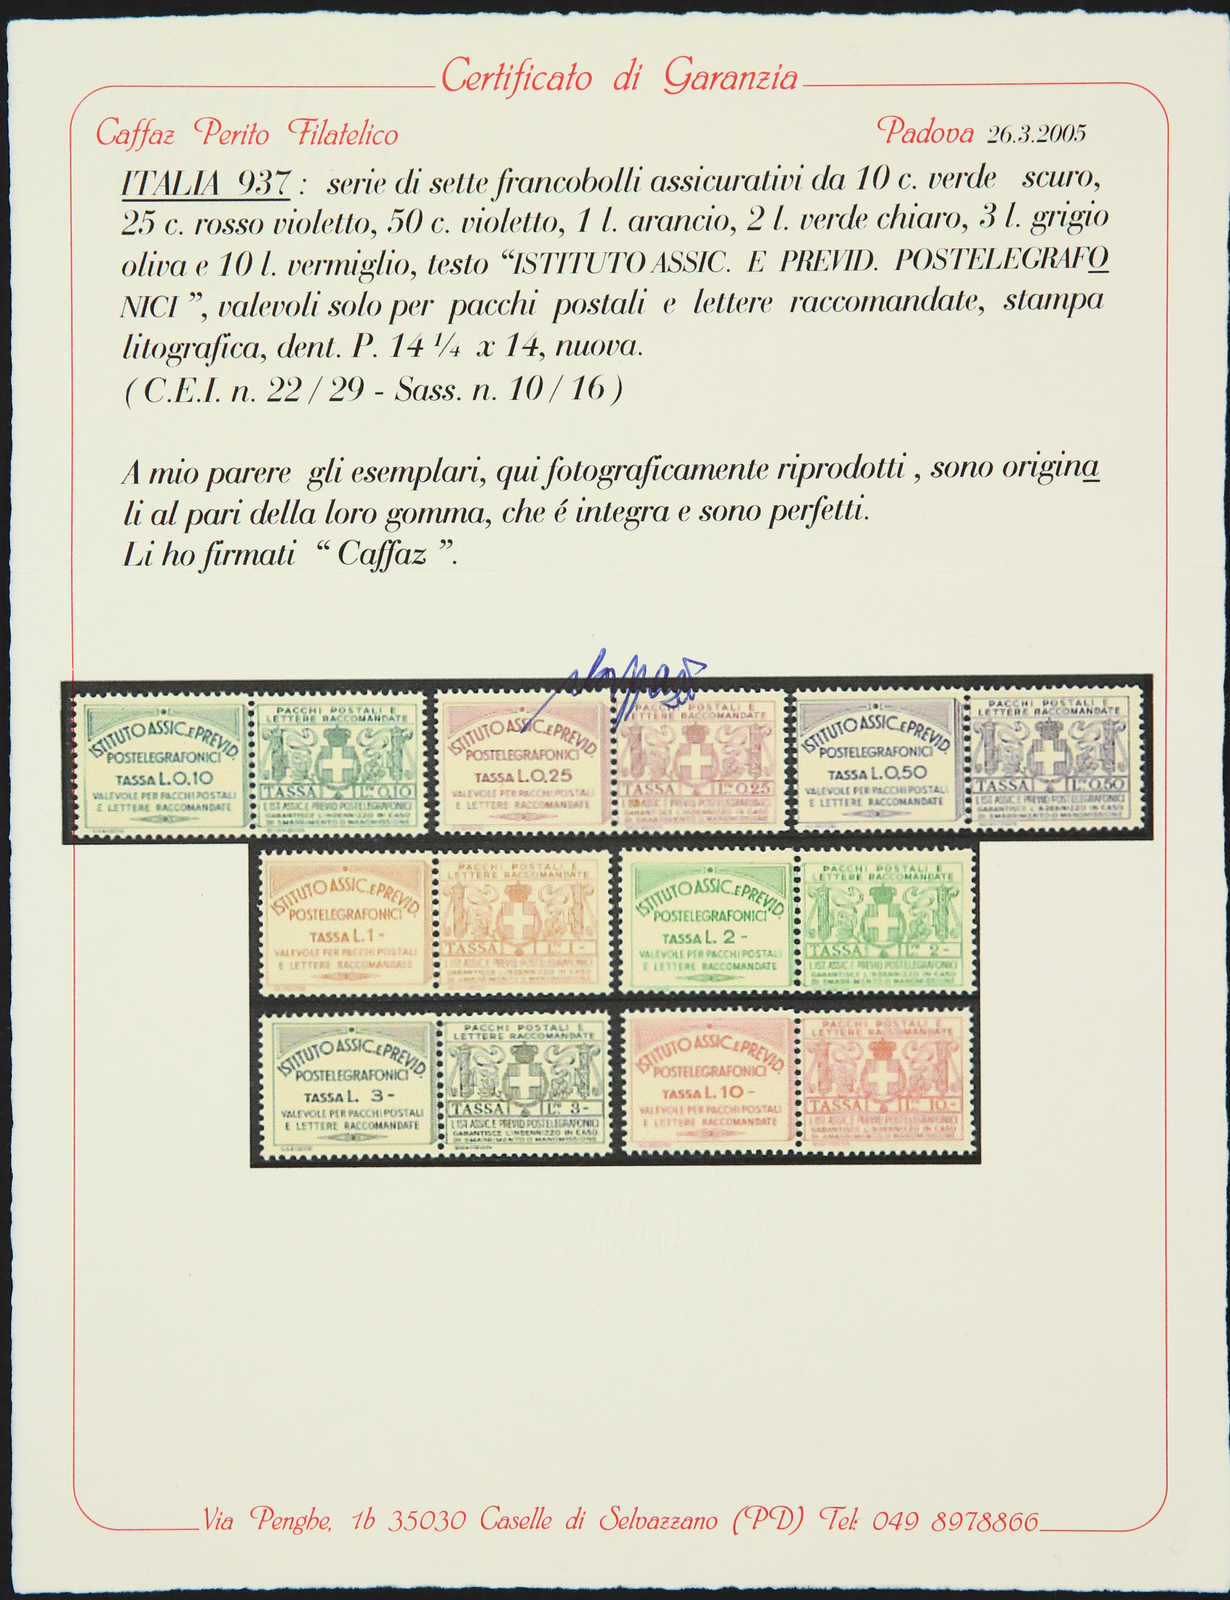 Certificato di Garanzia
Caffaz Perito Filatelico Padova 26.3.2005
ITALIA 937 : serie di sette francobolli assicurativi da 10 c. verde scuro,
25 c. rosso violetto, 50 c. violetto, 1 l. arancio, 2 l. verde chiaro, 3 l. grigio
oliva e 10 l. vermiglio, testo “ISTITUTO ASSIC. E PREVID. POSTELEGRAFO
NICI ”, valevoli solo per pacchi postali e lettere raccomandate, stampa
litografica, dent. P. 14 ¼ x 14, nuova.
( C.E.I. n. 22 / 29 - Sass. n. 10 / 16 )
A mio parere gli esemplari, qui fotograficamente riprodotti , sono origina
li al pari della loro gomma, che é integra e sono perfetti.
Li ho firmati “ Caffaz ”.
ISTITUTO ASSIC. E PREVID.
POSTELEGRAFONICI
TASSA L.0,10
VALEVOLE PER PACCHI POSTALI
E LETTERE RACCOMANDATE
PACCHI POSTALI E
LETTERE RACCOMANDATE
TASSA L. 0,10
L'IST. ASSIC. E PREVID. POSTELEGRAFONICI
GARANTISCE L'INDENNIZZO IN CASO
DI SMARRIMENTO O MANOMISSIONE
ISTITUTO ASSIC. E PREVID.
POSTELEGRAFONICI
TASSA L.0,25
VALEVOLE PER PACCHI POSTALI
E LETTERE RACCOMANDATE
PACCHI POSTALI E
LETTERE RACCOMANDATE
TASSA L. 0.25
L'IST. ASSIC. E PREVID. POSTELEGRAFONICI
GARANTISCE L'INDENNIZZO IN CASO
DI SMARRIMENTO O MANOMISSIONE
ISTITUTO ASSIC. E PREVID.
POSTELEGRAFONICI
TASSA L.0,50
VALEVOLE PER PACCHI POSTALI
E LETTERE RACCOMANDATE
PACCHI POSTALI E
LETTERE RACCOMANDATE
TASSA L. 0.50
L'IST. ASSIC. E PREVID. POSTELEGRAFONICI
GARANTISCE L'INDENNIZZO IN CASO
DI SMARRIMENTO O MANOMISSIONE
ISTITUTO ASSIC. E PREVID.
POSTELEGRAFONICI
TASSA L. 1 -
VALEVOLE PER PACCHI POSTALI
E LETTERE RACCOMANDATE
PACCHI POSTALI E
LETTERE RACCOMANDATE
TASSA L. 1-
L'IST. ASSIC. E PREVID. POSTELEGRAFONICI
GARANTISCE L'INDENNIZZO IN CASO
DI SMARRIMENTO O MANOMISSIONE
ISTITUTO ASSIC. E PREVID.
POSTELEGRAFONICI
TASSA L. 2 -
VALEVOLE PER PACCHI POSTALI
E LETTERE RACCOMANDATE
PACCHI POSTALI E
LETTERE RACCOMANDATE
TASSA L. 2-
L'IST. ASSIC. E PREVID. POSTELEGRAFONICI
GARANTISCE L'INDENNIZZO IN CASO
DI SMARRIMENTO O MANOMISSIONE
ISTITUTO ASSIC. E PREVID.
POSTELEGRAFONICI
TASSA L. 3 -
VALEVOLE PER PACCHI POSTALI
E LETTERE RACCOMANDATE
PACCHI POSTALI E
LETTERE RACCOMANDATE
TASSA L. 3-
L'IST. ASSIC. E PREVID. POSTELEGRAFONICI
GARANTISCE L'INDENNIZZO IN CASO
DI SMARRIMENTO O MANOMISSIONE
ISTITUTO ASSIC. E PREVID.
POSTELEGRAFONICI
TASSA L. 10 -
VALEVOLE PER PACCHI POSTALI
E LETTERE RACCOMANDATE
PACCHI POSTALI E
LETTERE RACCOMANDATE
TASSA L. 10.-
L'IST. ASSIC. E PREVID. POSTELEGRAFONICI
GARANTISCE L'INDENNIZZO IN CASO
DI SMARRIMENTO O MANOMISSIONE
Via Penghe, 1b 35030 Caselle di Selvazzano (PD) Tel: 049 8978866